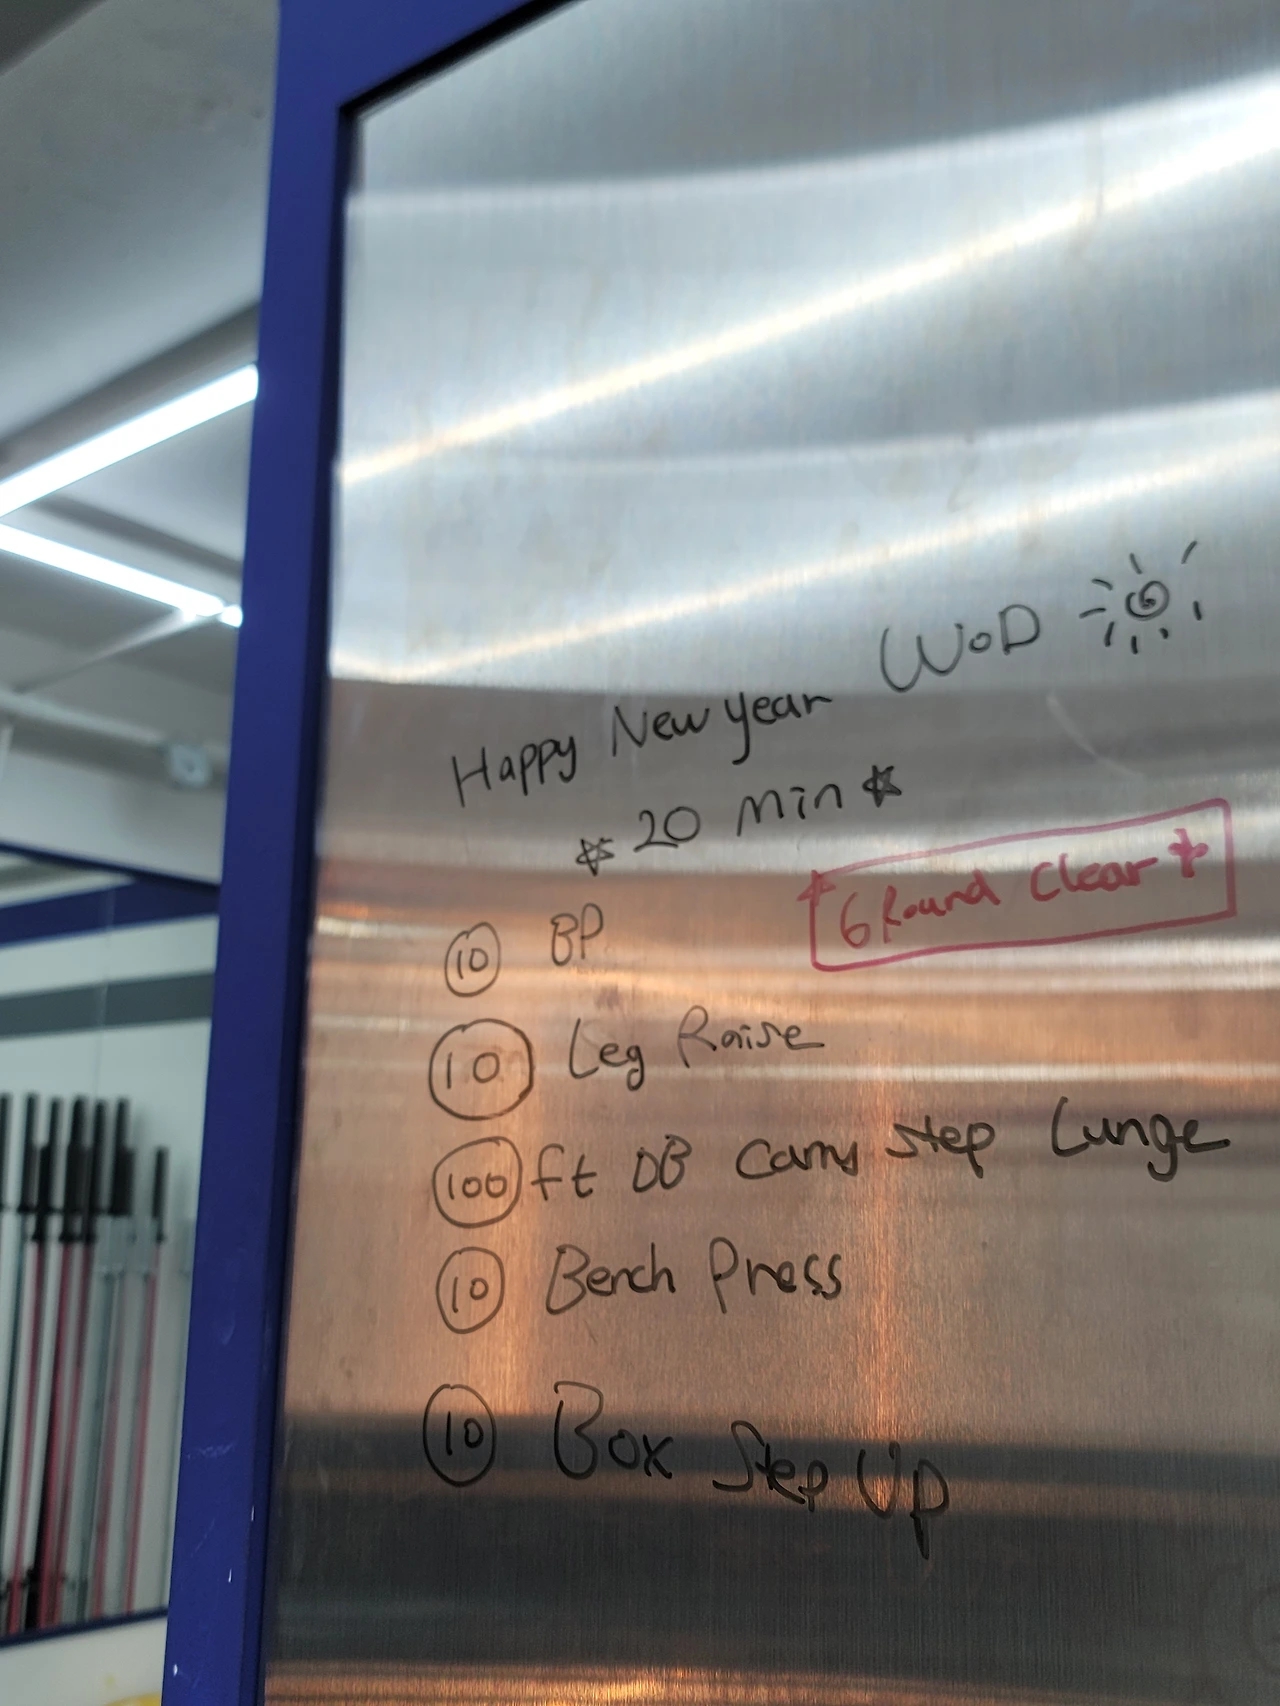 Happy New year WoD
20 min
6 Round Clear
10 BP
10 Leg Raise
100 ft DB Carry step Lunge
10 Bench Press
10 Box Step Up